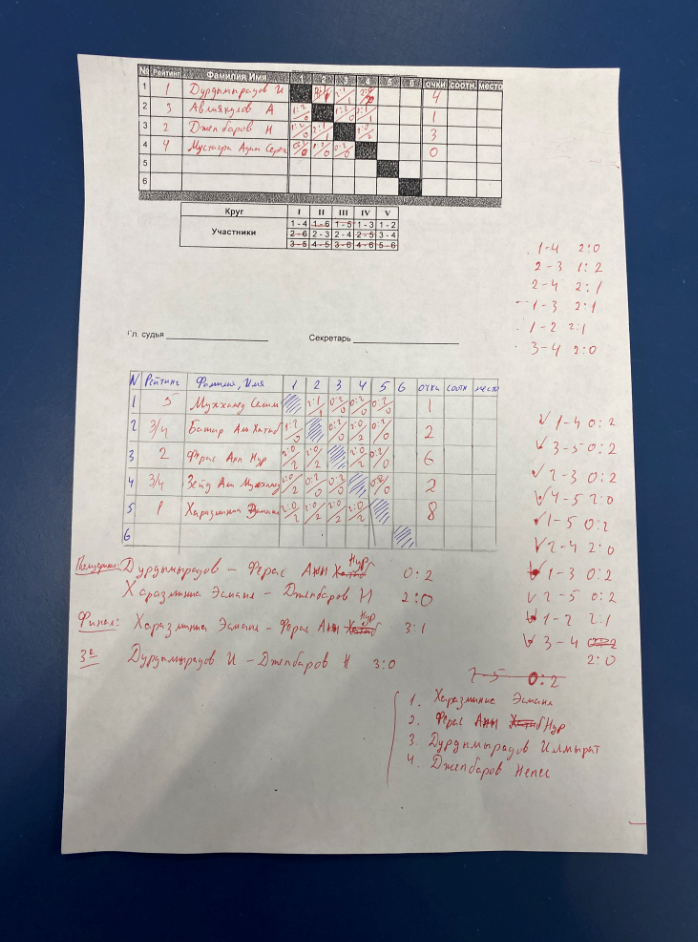 № Рейтинг Фамилия Имя 1 2 3 4 5 6 очки соотн. место
1 1 Дурдымырадов И 2:1/1 2:0 4
2 3 А 1:2/0 1:2/0 2:1/1 1
3 2 Джепбаров Н 1:2/0 2:1/1 2:0 3
4 4 Мустафа 0:2/0 1:2/0 0:2/0 0
5
6
Круг I II III IV V
Участники 1-4 1-6 1-5 1-3 1-2
2-6 2-3 2-4 2-5 3-4
3-5 4-5 3-6 4-6 5-6
1-4 2:0
2-3 1:2
2-4 2:1
1-3 2:1
1-2 2:1
3-4 2:0
Гл. судья Секретарь
N Рейтинг Фамилия, Имя 1 2 3 4 5 6 очки соотн место
1 5 Мухаммед Салим 2:1/1 0:2/0 0:2/0 0:2/0 1
2 3/4 Башар Ал Хатиб 1:2/0 0:2/0 2:0/2 0:2/0 2
3 2 Ферас Алн Нур 2:0/2 2:0/2 2:0/2 0:2/0 6
4 3/4 Зейд Ал 2:0/2 0:2/0 0:2/0 0:2/0 2
5 1 Харазминие Эсмаил 2:0/2 2:0/2 2:0/2 2:0/2 8
6
1-4 0:2
3-5 0:2
2-3 0:2
4-5 2:0
1-5 0:2
2-4 2:0
1-3 0:2
2-5 0:2
1-2 2:1
3-4 2:0
Дурдымырадов - Ферас Алн Нур 0:2
Харазминие Эсмаил - Джепбаров Н 2:0
Финал: Харазминие Эсмаил - Ферас Алн Нур 3:1
3е Дурдымырадов И - Джепбаров Н 3:0
2-5 0:2
1. Харазминие Эсмаил
2. Ферас Алн Нур
3. Дурдымырадов Илмырат
4. Джепбаров Непес